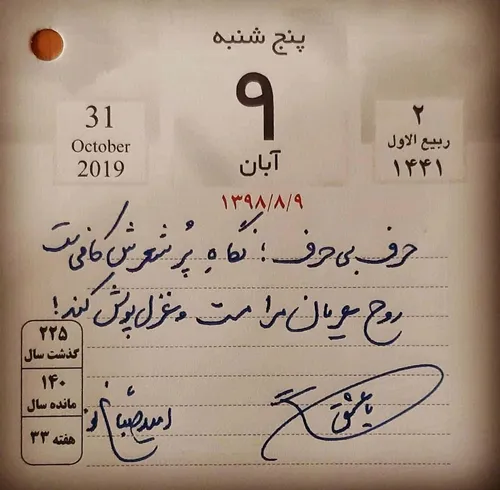 پنج شنبه
۹
آبان
31
October
2019
۲
ربیع الاول
۱۴۴۱
۱۳۹۸/۸/۹
حرف بی حرف؛ نگاهِ پُر شعرش کافی ست
روح عریان مرا مست و غزل پوش کند!
۲۲۵
گذشت سال
۱۴۰
مانده سال
هفته ۳۳
یا عشق
امید صباغ نو